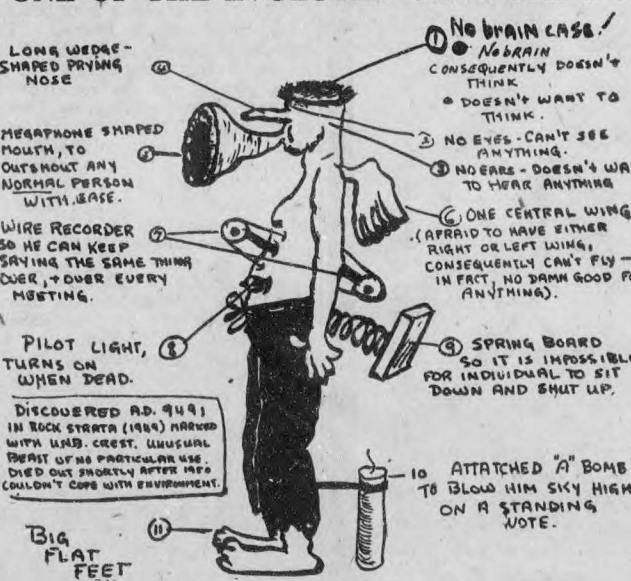 ONE OF THE
LONG WEDGE-
SHAPED PRYING
NOSE
4
MEGAPHONE SHAPED
MOUTH, TO
OUTSHOUT ANY
NORMAL PERSON
WITH EASE.
5
WIRE RECORDER
SO HE CAN KEEP
SAYING THE SAME THING
OVER, + OVER EVERY
MEETING.
7
PILOT LIGHT,
TURNS ON
WHEN DEAD.
8
DISCOVERED A.D. 9491
IN ROCK STRATA (1949) MARKED
WITH U.N.B. CREST. UNUSUAL
BEAST OF NO PARTICULAR USE.
DIED OUT SHORTLY AFTER 1950
COULDN'T COPE WITH ENVIRONMENT.
BIG
FLAT
FEET
11
1 NO BRAIN CASE!
• NO BRAIN
CONSEQUENTLY DOESN'T
THINK
• DOESN'T WANT TO
THINK.
2 NO EYES - CAN'T SEE
ANYTHING.
3 NO EARS - DOESN'T WA
TO HEAR ANYTHING
6 ONE CENTRAL WING
(AFRAID TO HAVE EITHER
RIGHT OR LEFT WING,
CONSEQUENTLY CAN'T FLY -
IN FACT, NO DAMN GOOD FO
ANYTHING).
9 SPRING BOARD
SO IT IS IMPOSSIBL
FOR INDIVIDUAL TO SIT
DOWN AND SHUT UP.
10 ATTATCHED "A" BOMB
TO BLOW HIM SKY HIGH
ON A STANDING
NOTE.